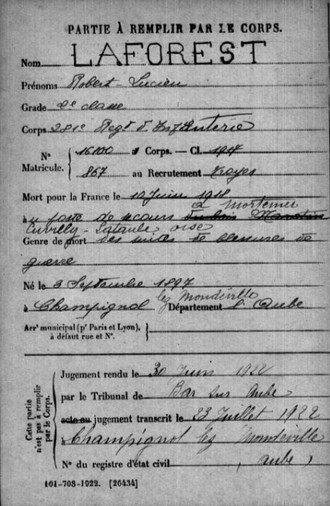 PARTIE À REMPLIR PAR LE CORPS.
Nom LAFOREST
Prénoms Robert Lucien
Grade 2e classe
Corps 281e Regt d'Infanterie
N° Matricule. 16100 au Corps. — Cl. 1917
867 au Recrutement Troyes
Mort pour la France le 10 Juin 1918
à Mortemer
au poste de secours
Cuvilly - Lataule oise
Genre de mort des suites de blessures de
guerre
Né le 3 Septembre 1897
à Champignol lez Mondeville Département l'Aube
Arrt municipal (pr Paris et Lyon),
à défaut rue et N°.
Cette partie
n'est pas à remplir
par le Corps.
Jugement rendu le 30 Juin 1922
par le Tribunal de Bar sur Aube
acte ou jugement transcrit le 23 Juillet 1922
à Champignol lez Mondeville
N° du registre d'état civil (Aube)
101-708-1922. [26434]